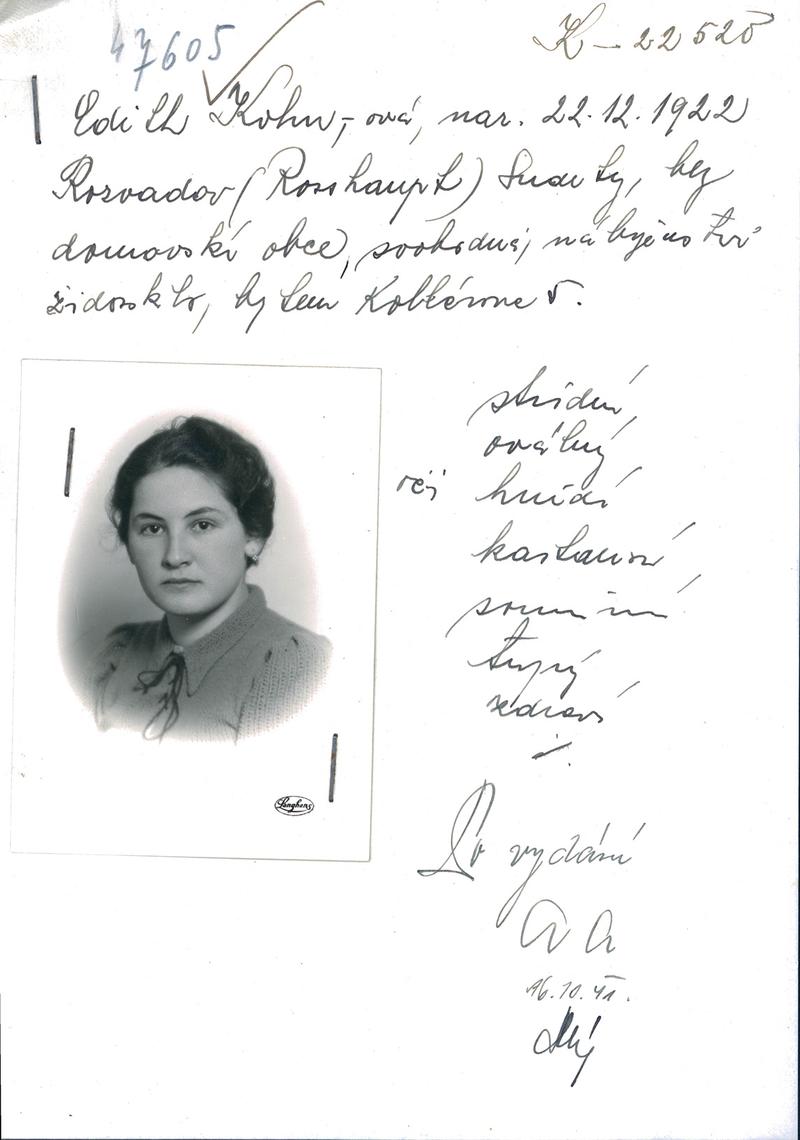 47605
K-22528
Edith Kohn,-ová, nar. 22.12.1922
Rozvadov (Rosshaupt) Sudety, bez
domovské obce, svobodná, náboženství
židovského, bytem
střední,
oválný
oči hnědé
kaštanové
souměrná
tupý
zdravé
Po vydání
a a
16.10.41.